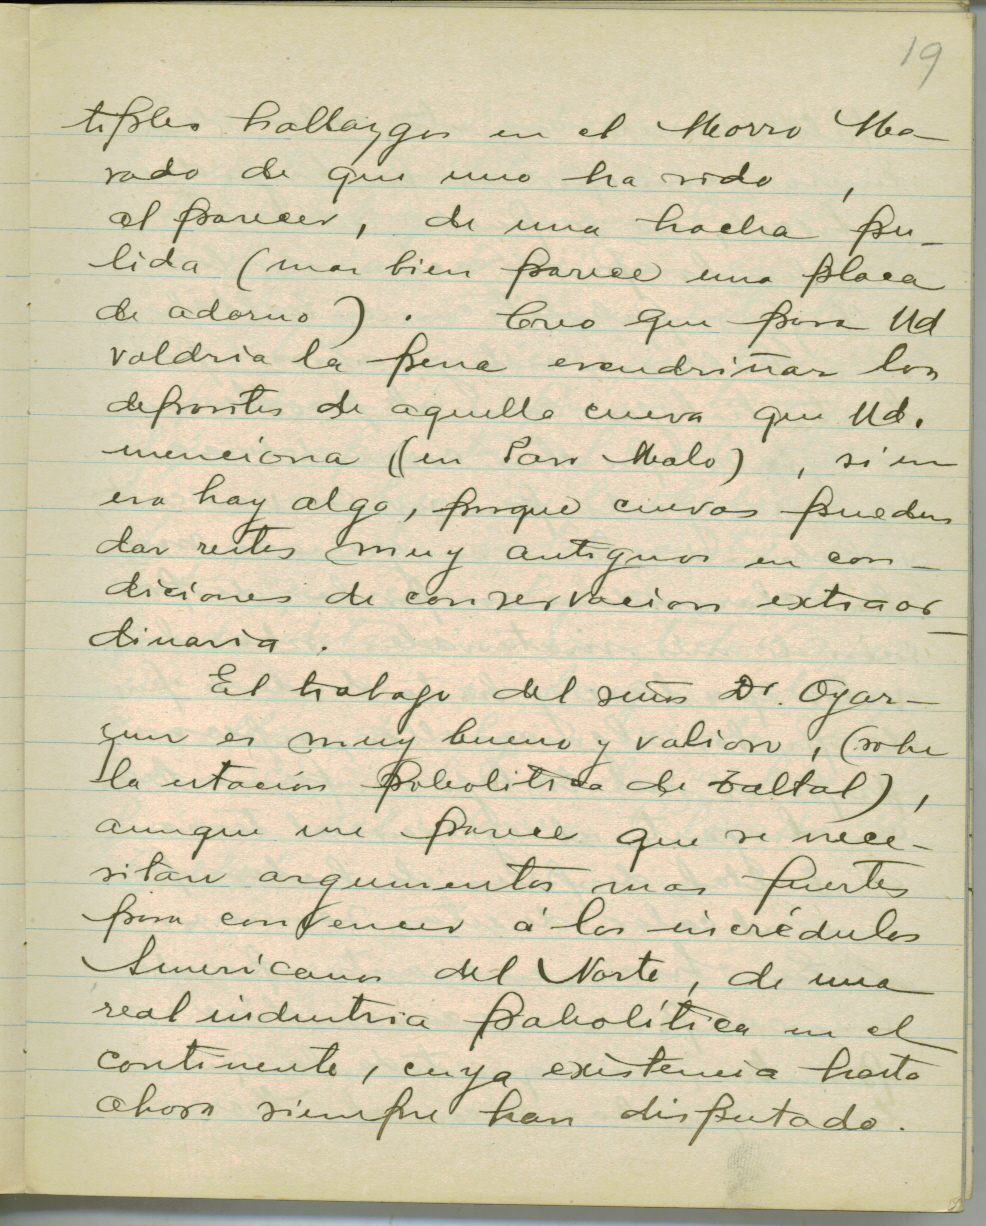 19
tiples hallazgos en el Morro Mo-
rado de que uno ha sido,
al parecer, de una hacha pu-
lida (mas bien parece una placa
de adorno). Creo que para Ud
valdria la pena escudriñar los
depositos de aquella cueva que Ud.
menciona ((en Paso Malo), si en
esa hay algo, porque cuevas pueden
dar restos muy antiguos en con-
diciones de conservacion extraor-
dinaria.
El trabajo del señor Dr. Oyar-
zun es muy bueno y valioso, (sobre
la estación paleolitica de Taltal),
aunque me parece que se nece-
sitan argumentos mas fuertes
para convencer á los incrédulos
Americanos del Norte, de una
real industria paleolítica en el
continente, cuya existencia hasta
ahora siempre han disputado.